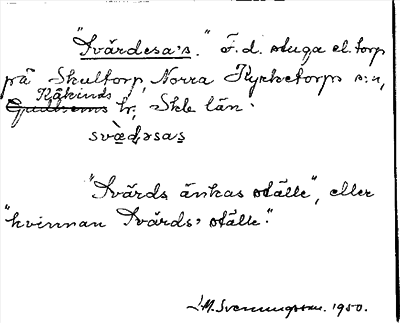 "Svärdesa's." ö.d. stuga el. torp
på Skultorp, Norra Kyrketorps s:n,
Kåkinds
Gudhems hr, Skbr län.
svæ̀ḍəsas̱
"Svärds änkas ställe", eller
"kvinnan Svärds' ställe".
J.M. Svenungsson. 1950.